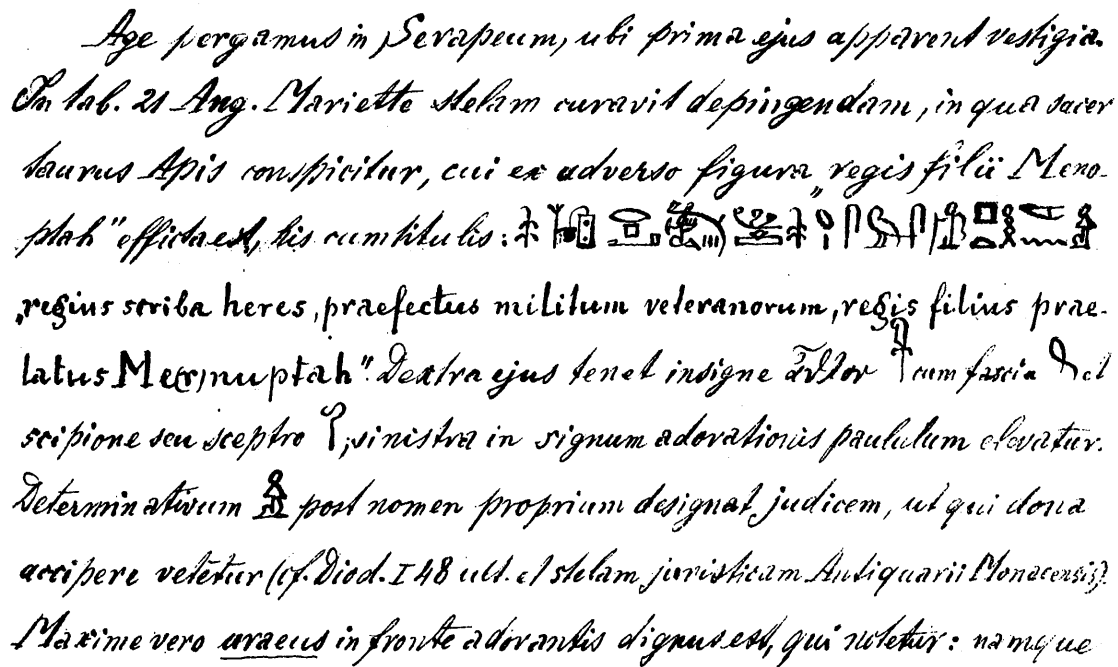 Age pergamus in Serapeum, ubi prima ejus apparent vestigia.
In tab. 21 Aug. Mariette stelam curavit depingendam, in qua sacer
taurus Apis conspicitur, cui ex adverso figura „regis filii Meno-
ptah" efficta est, his cum titulis:
„regius scriba heres, praefectus militum veteranorum, regis filius prae-
latus Me(r)nuptah". Dextra ejus tenet insigne cum fascia et
scipione seu sceptro , sinistra in signum adorationis paululum elevatur.
Determinativum post nomen proprium designat judicem, ut qui dona
accipere vetetur (cf. Diod. I 48 ult. et stelam juristicam Antiquarii Monacensis).
Maxime vero uraeus in fronte adorantis dignus est, qui notetur: namque